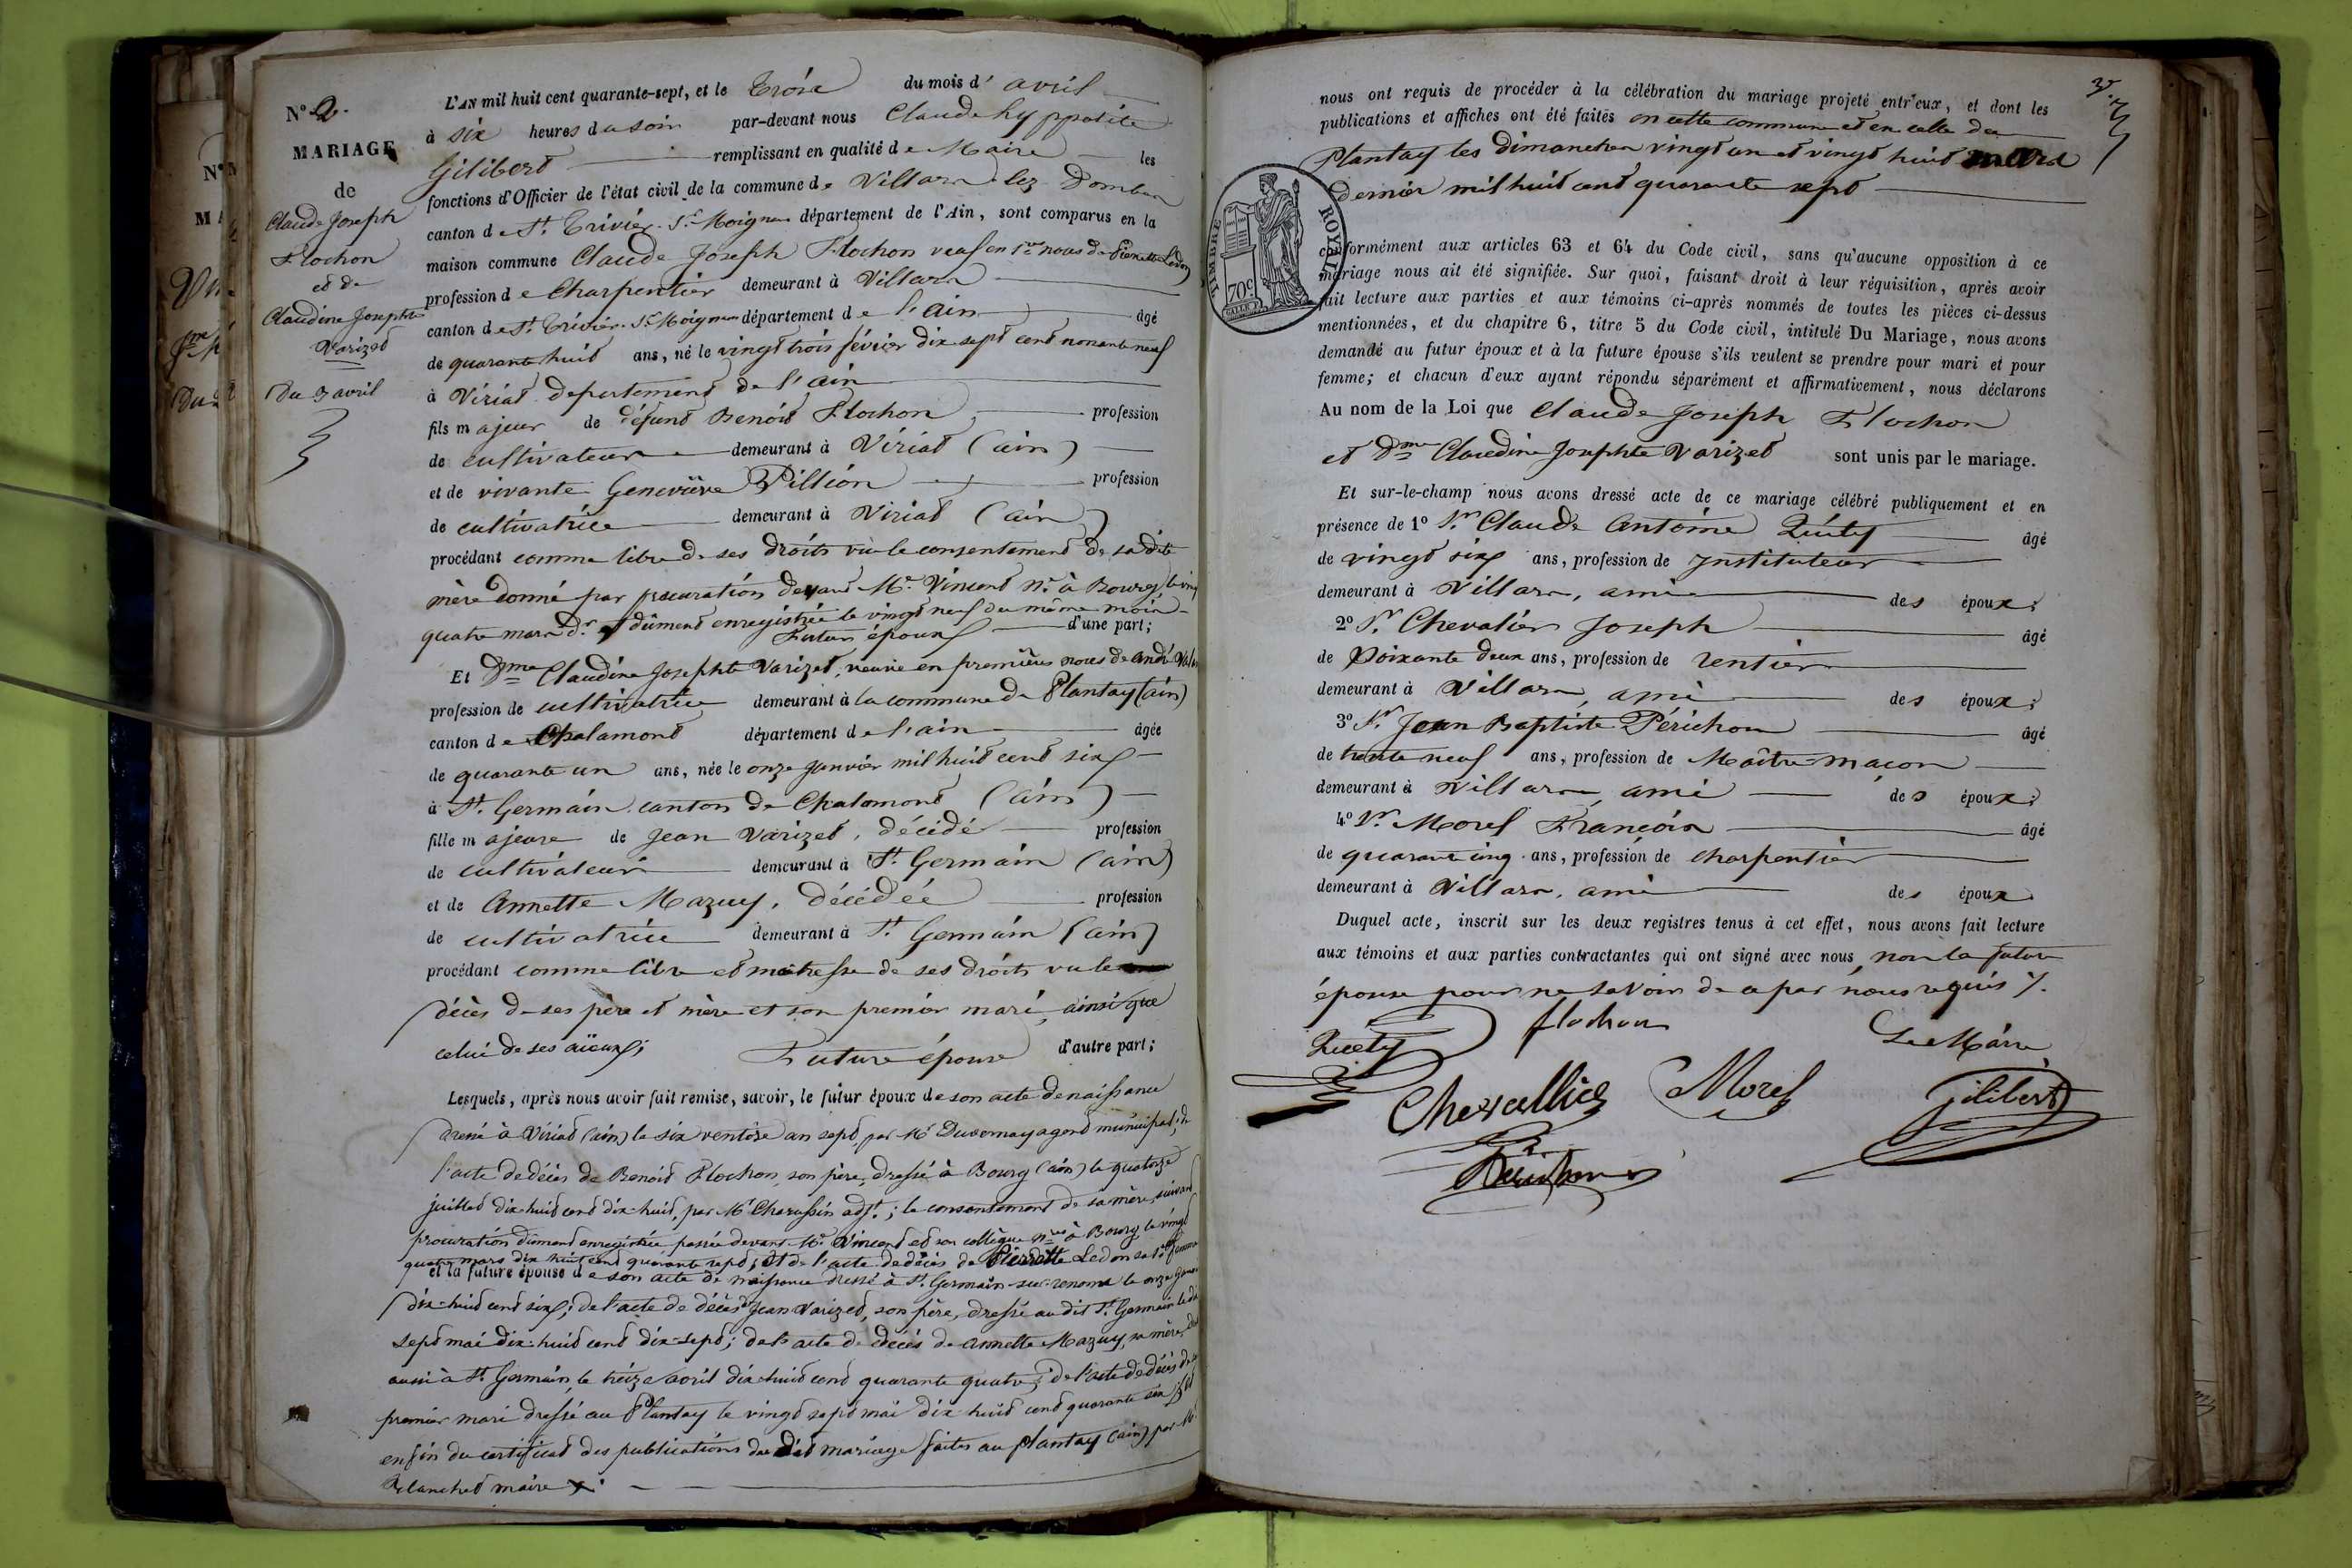 N° 2.
MARIAGE
de
Claude Joseph
Flochon
et de
Claudine Josephte
Varizet
Du 3 avril
L'AN mil huit cent quarante-sept, et le trois du mois d'avril
à six heures du soir par-devant nous Claude hyppolite
Gilibert remplissant en qualité de Maire les
fonctions d'Officier de l'état civil de la commune de Villars lez Dombes
canton de St. Trivier St. Moignans département de l'Ain, sont comparus en la
maison commune Claude Joseph Flochon veuf en 1res noces de Pierrette Ledon
profession de Charpentier demeurant à Villars
canton de St. Trivier St. Moignans département de l'ain âgé
de quarante huit ans, né le vingt trois février dix sept cent nonante neuf
à Viriat departement de l'ain
fils majeur de défunt Benoit Flochon profession
de cultivateur demeurant à Viriat (ain)
et de vivante Geneviève Pillion profession
de cultivatrice demeurant à Viriat (ain)
procédant comme libre de ses droits vu le consentement de sa dite
mère donné par procuration devant Me. Vincent Nre. à Bourg, le vingt
quatre mars dr. dûment enregistrée le vingt neuf du même mois
Futur époux d'une part;
Et Dme Claudine Josephte Varizet, veuve en premières noces de andré
profession de cultivatrice demeurant à la commune de Plantay (ain)
canton de Chalamont département de l'ain âgée
de quarante un ans, née le onze janvier mil huit cent six
à St. Germain canton de Chalamont (ain)
fille majeure de Jean Varizet, décédé profession
de cultivateur demeurant à St. Germain (ain)
et de Annette Mazuy, décédée profession
de cultivatrice demeurant à St. Germain (ain)
procédant comme libre et maitresse de ses droits vu le
décès de ses père et mère et son premier mari, ainsi que
celui de ses aïeux; Future épouse d'autre part;
Lesquels, après nous avoir fait remise, savoir, le futur époux de son acte de naissance
dressé à Viriat (ain) le six ventose an sept, par Mr agent municipal; de
l'acte de décès de Benoit Flochon, son père, dressé à Bourg (ain) le quatorze
juillet dix-huit cent dix-huit, par Mr Chambrin adjt.; le consentement de sa mère, suivant
procuration dûment enregistrée passée devant Me. Vincent et son collègue nres à Bourg le vingt
quatre mars dix huit cent quarante sept; Et de l'acte de décès de Pierrette Ledon sa 1re femme
et la future épouse de son acte de naissance dressé à St. Germain-sur-renoms le onze janvier
dix-huit cent six; de l'acte de décès de Jean Varizet, son père, dressé au dit St. Germain le dix
sept mai dix-huit cent dix-sept; de l'acte de décès de annette Mazuy, sa mère,
aussi à St. Germain, le treize avril dix-huit cent quarante quatre; de l'acte de décès de
premier mari dressé au Plantay le vingt sept mai dix huit cent quarante six; et
enfin du certificat des publications du dit mariage faites au plantay (ain) par Mr
Blanchet maire
nous ont requis de procéder à la célébration du mariage projeté entr'eux, et dont les
publications et affiches ont été faites en cette commune et en celle du
Plantay les dimanches vingt un et vingt huit mars
dernier mil huit cent quarante sept
TIMBRE ROYAL
70c
conformément aux articles 63 et 64 du Code civil, sans qu'aucune opposition à ce
mariage nous ait été signifiée. Sur quoi, faisant droit à leur réquisition, après avoir
fait lecture aux parties et aux témoins ci-après nommés de toutes les pièces ci-dessus
mentionnées, et du chapitre 6, titre 5 du Code civil, intitulé Du Mariage, nous avons
demandé au futur époux et à la future épouse s'ils veulent se prendre pour mari et pour
femme; et chacun d'eux ayant répondu séparément et affirmativement, nous déclarons
Au nom de la Loi que Claude Joseph Flochon
et Dme Claudine Josephte Varizet sont unis par le mariage.
Et sur-le-champ nous avons dressé acte de ce mariage célébré publiquement et en
présence de 1° Sr. Claude Antoine Quéty âgé
de vingt six ans, profession de Instituteur
demeurant à Villars, ami des époux;
2° Sr. Chevalier Joseph âgé
de Soixante deux ans, profession de rentier
demeurant à Villars, ami des époux;
3° Sr. Jean Baptiste Périchon âgé
de trente neuf ans, profession de Maître maçon
demeurant à Villars, ami des époux;
4° Sr. Morel François âgé
de quarante cinq ans, profession de charpentier
demeurant à Villars, ami des époux
Duquel acte, inscrit sur les deux registres tenus à cet effet, nous avons fait lecture
aux témoins et aux parties contractantes qui ont signé avec nous, non la future
épouse pour ne savoir de ce par nous requis /.
Quéty flochon Le Maire
Chevallier Morel Gilibert
Périchon